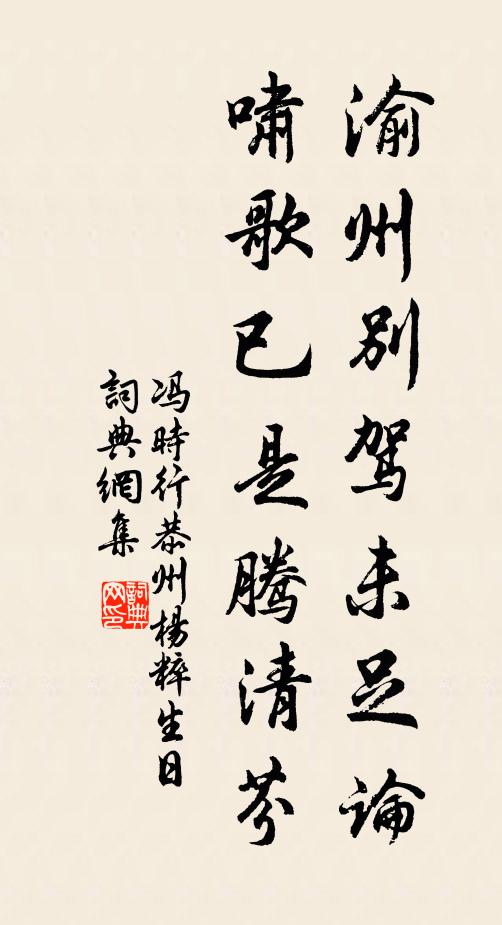 渝州別駕未足論
嘯歌已是騰清芬
冯時行恭州楊粹生日
詞典網集
詞典
网印